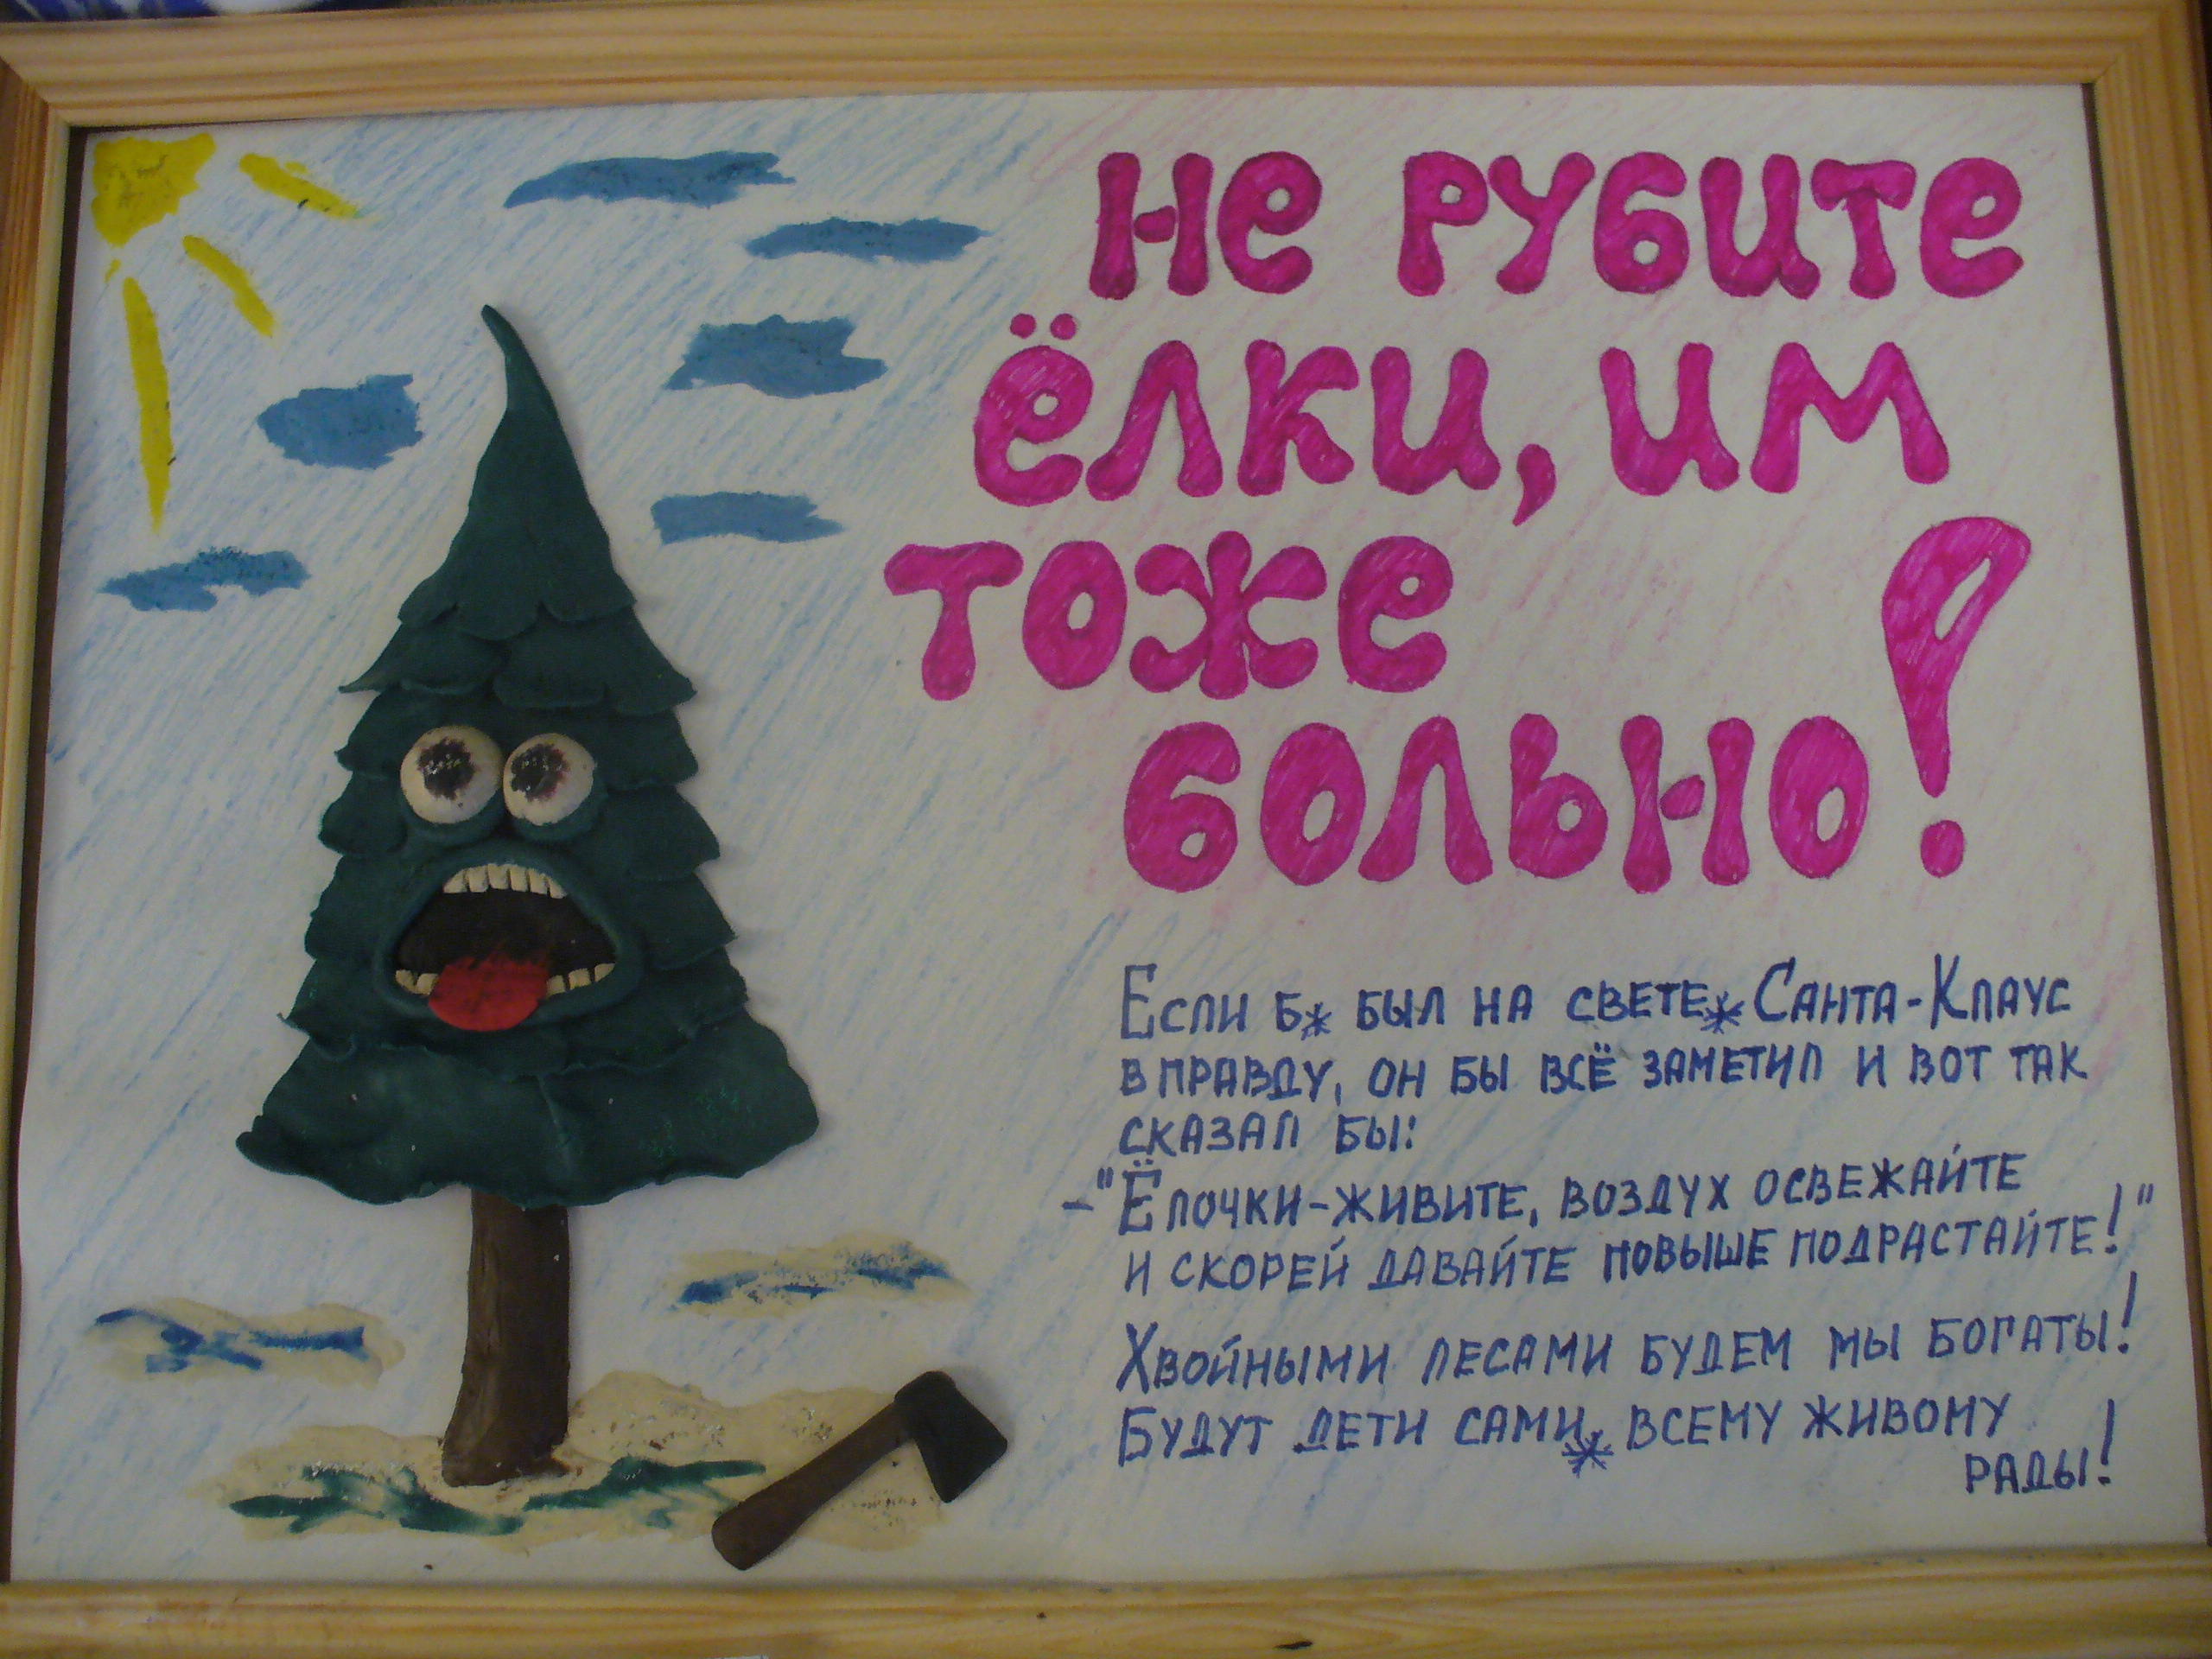 не рубите
ёлки, им
тоже
больно!
Если б* был на свете* Санта-Клаус
вправду, он бы всё заметил и вот так
сказал бы:
-"Ёлочки-живите, воздух освежайте
и скорей давайте повыше подрастайте!"
Хвойными лесами будем мы богаты!
Будут дети сами* всему живому
рады!